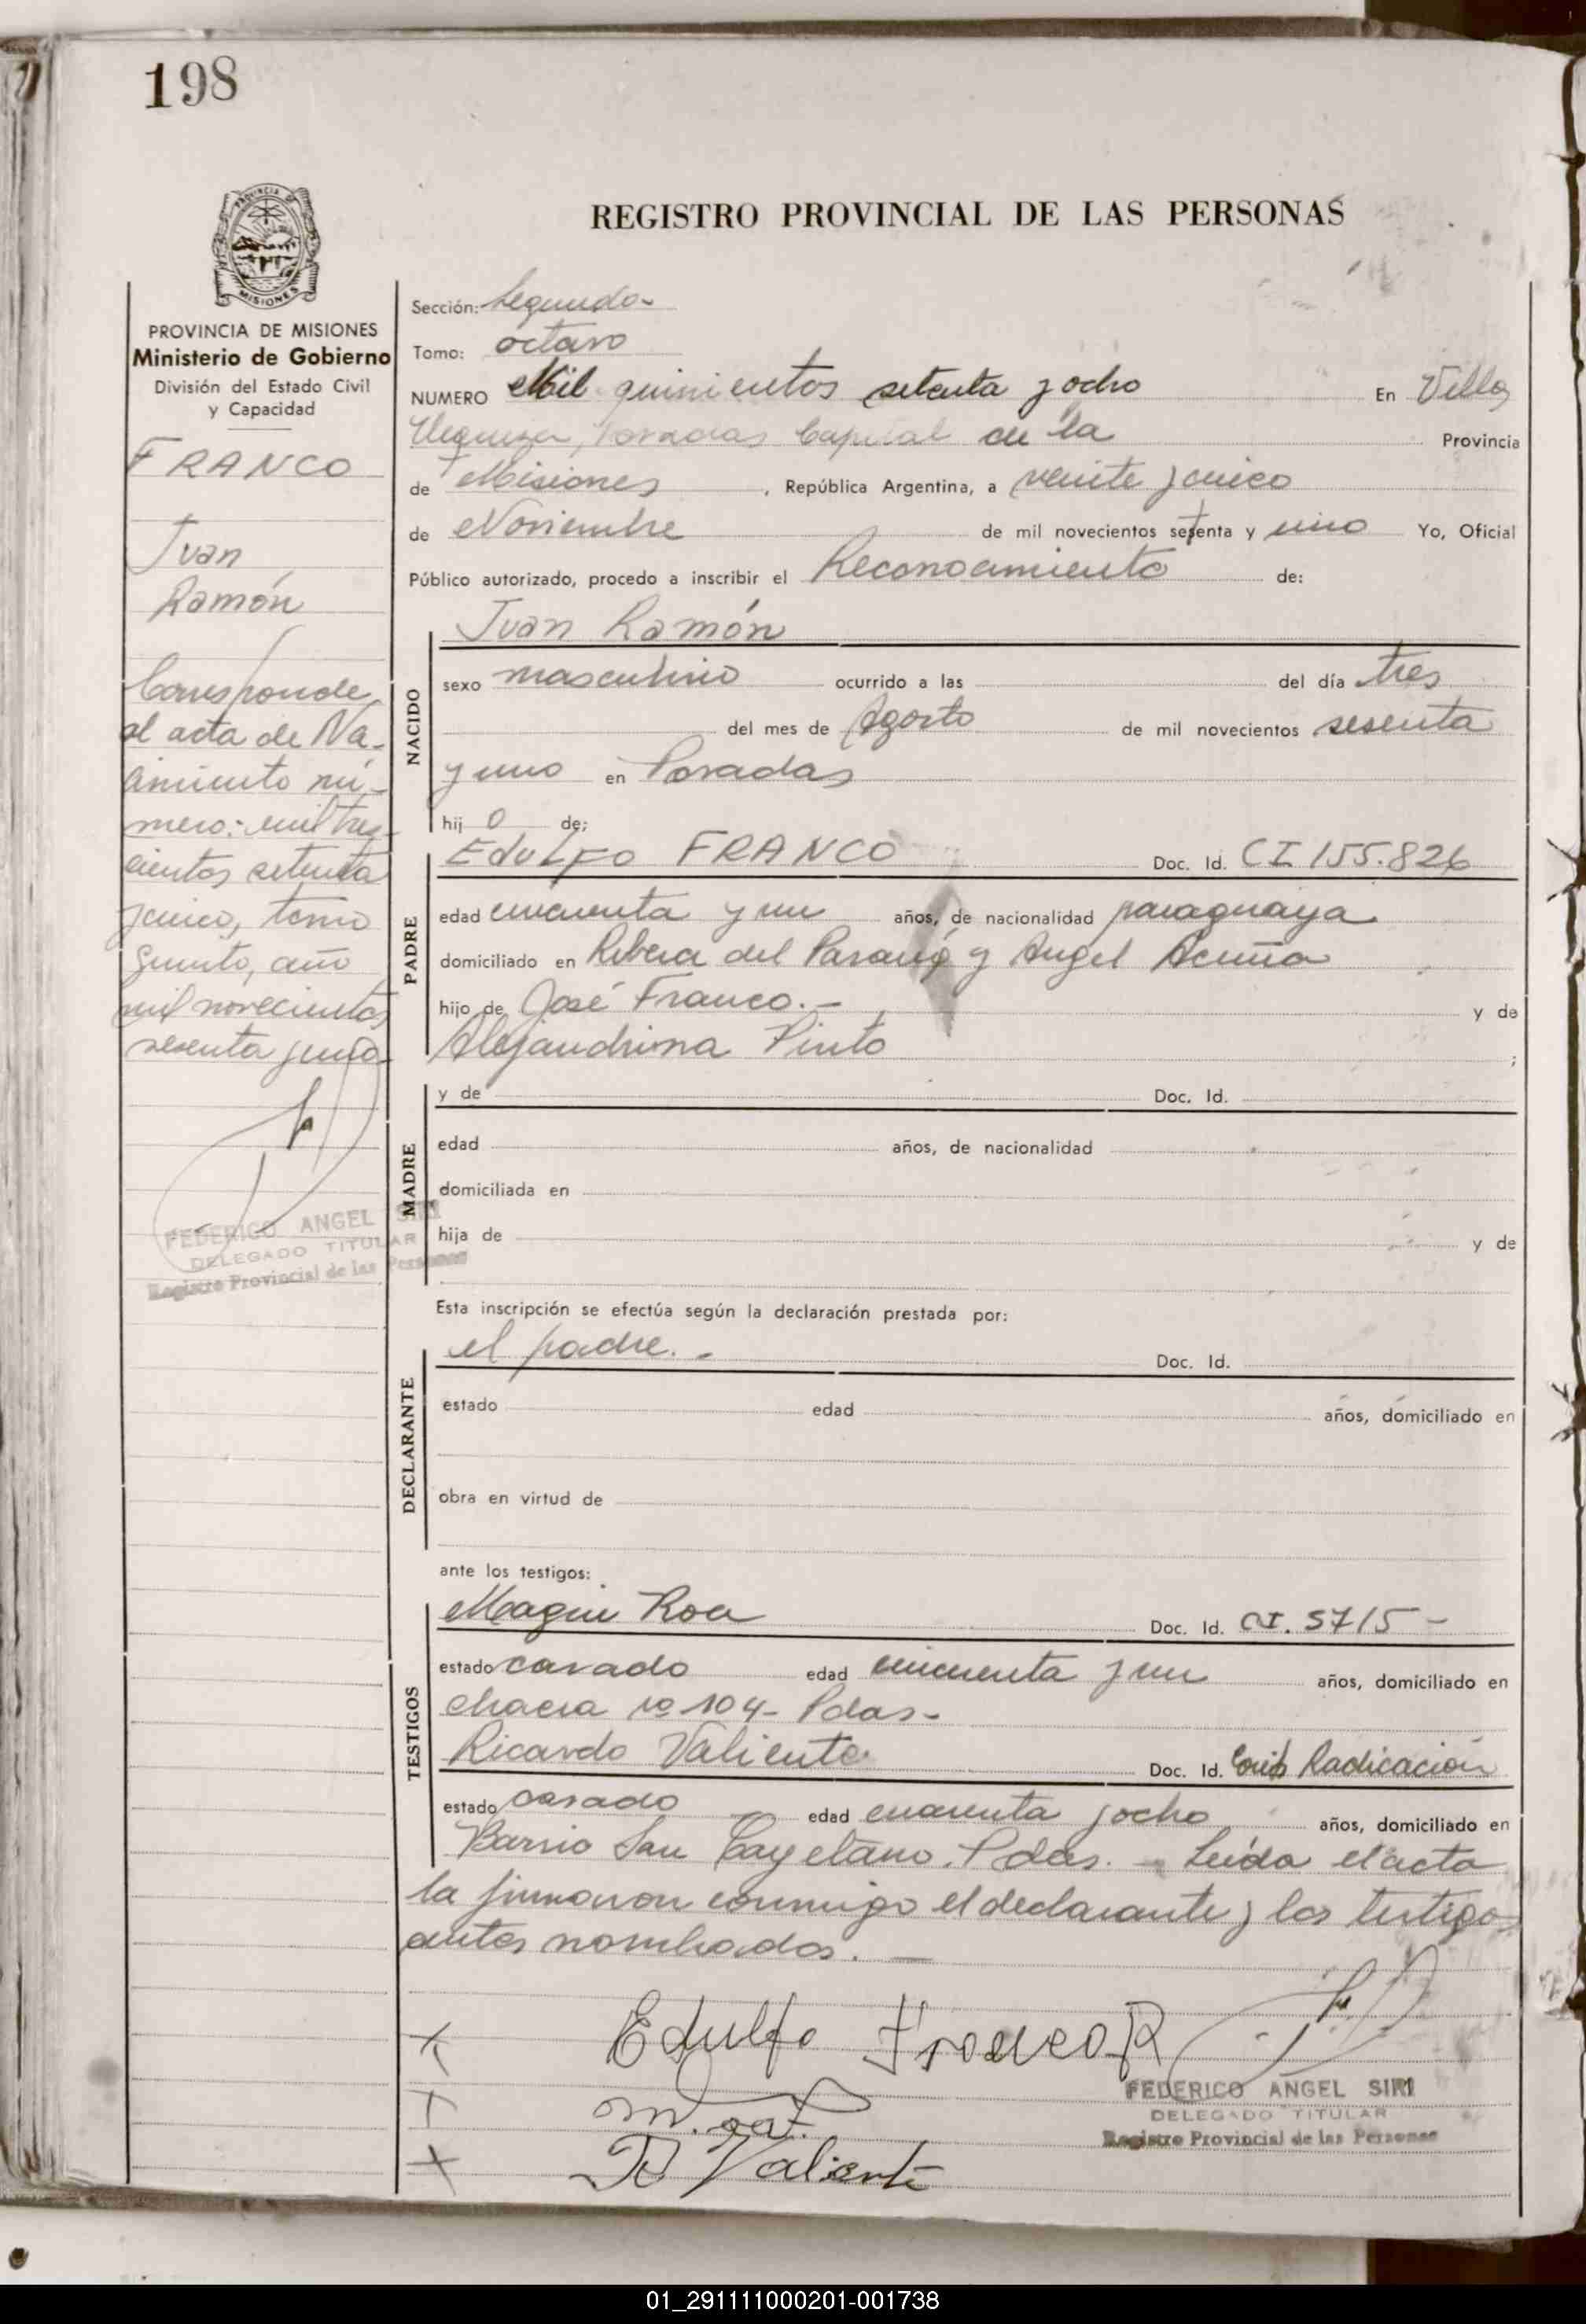 198
PROVINCIA DE MISIONES
Ministerio de Gobierno
División del Estado Civil
y Capacidad
FRANCO
Juan
Ramón
Corresponde
al acta de Na-
cimiento nú-
mero: mil tres-
cientos setenta
y cinco, tomo
quinto, año
mil novecientos
sesenta y uno
FEDERICO ANGEL SIRI
DELEGADO TITULAR
Registro Provincial de las Personas
REGISTRO PROVINCIAL DE LAS PERSONAS
Sección: Segunda-
Tomo: octavo
NUMERO Mil quinientos setenta y ocho En Villa
Urquiza, Posadas Capital de la Provincia
de Misiones, República Argentina, a veinte y cinco
de Noviembre de mil novecientos setenta y uno Yo, Oficial
Público autorizado, procedo a inscribir el Reconocimiento de:
NACIDO
Juan Ramón
sexo masculino ocurrido a las del día tres
del mes de Agosto de mil novecientos sesenta
y uno en Posadas
hij o de:
PADRE
Edulfo FRANCO Doc. Id. CI 155.826
edad cincuenta y un años, de nacionalidad paraguaya
domiciliado en Ribera del Paraná y Angel Acuña
hijo de José Franco.- y de
Alejandrina Pinto ;
MADRE
y de Doc. Id.
edad años, de nacionalidad
domiciliada en
hija de y de
Esta inscripción se efectúa según la declaración prestada por:
DECLARANTE
el padre.- Doc. Id.
estado edad años, domiciliado en
obra en virtud de
ante los testigos:
TESTIGOS
Magin Roa Doc. Id. CI. 5715-
estado casado edad cincuenta y un años, domiciliado en
chacra nº 104- Pdas-
Ricardo Valiente Doc. Id. Radicación
estado casado edad cuarenta y ocho años, domiciliado en
Barrio San Cayetano. Pdas.- Leída el acta
la firmaron conmigo el declarante y los testigos
antes nombrados.-
Edulfo Franco R
R Valiente
FEDERICO ANGEL SIRI
DELEGADO TITULAR
Registro Provincial de las Personas
01_291111000201-001738